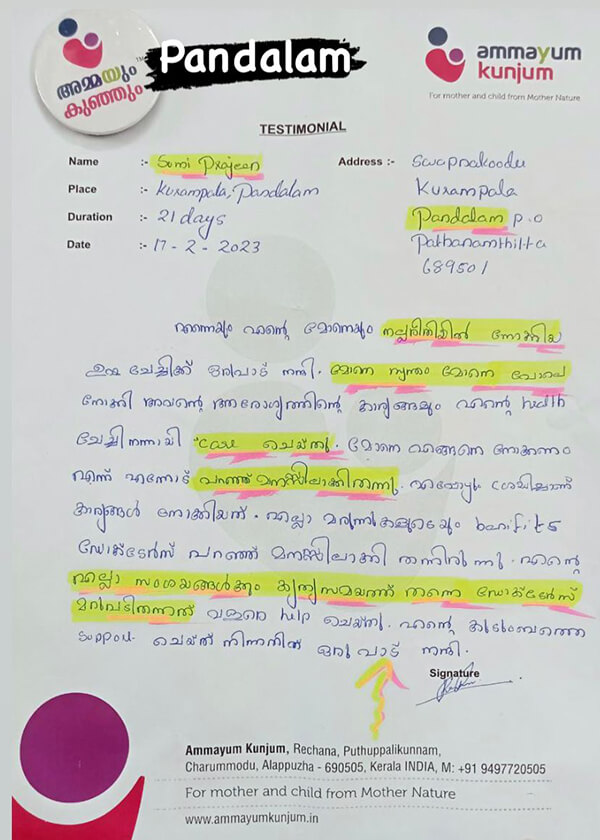 അമ്മയും
കുഞ്ഞും
Pandalam
ammayum
kunjum
For mother and child from Mother Nature
TESTIMONIAL
Name :- Somi Prajeen
Place :- Kurampala, Pandalam
Duration :- 21 days
Date :- 17-2-2023
Address :- Swapnakoodu
Kurampala
Pandalam P.O
Pathanamthitta
689501
എന്നെയും എന്റെ മോനെയും നല്ലരീതിയിൽ നോക്കിയ
ഉഷ ചേച്ചിക്ക് ഒരുപാട് നന്ദി. മോനെ സ്വന്തം മോനെ പോലെ
നോക്കി അവന്റെ ആരോഗ്യത്തിന്റെ കാര്യങ്ങളും എന്റെ health
ചേച്ചി നന്നായി care ചെയ്തു. മോനെ എങ്ങനെ നോക്കണം
എന്ന് എന്നോട് പറഞ്ഞ് മനസ്സിലാക്കിതന്നു. എപ്പോഴും
കാര്യങ്ങൾ നോക്കിയത്. എല്ലാ മരുന്നുകളുടെയും benifits
ഡോക്ടേർസ് പറഞ്ഞ് മനസ്സിലാക്കി തന്നിരുന്നു. എന്റെ
എല്ലാ സംശയങ്ങൾക്കും കൃത്യസമയത്ത് തന്നെ ഡോക്ടേർസ്
മറുപടിതന്നത് വളരെ help ചെയ്തു. എന്റെ കുടുംബത്തെ
support ചെയ്ത് നിന്നതിന് ഒരുപാട് നന്ദി.
Signature
Ammayum Kunjum, Rechana, Puthuppalikunnam,
Charummodu, Alappuzha - 690505, Kerala INDIA, M: +91 9497720505
For mother and child from Mother Nature
www.ammayumkunjum.in